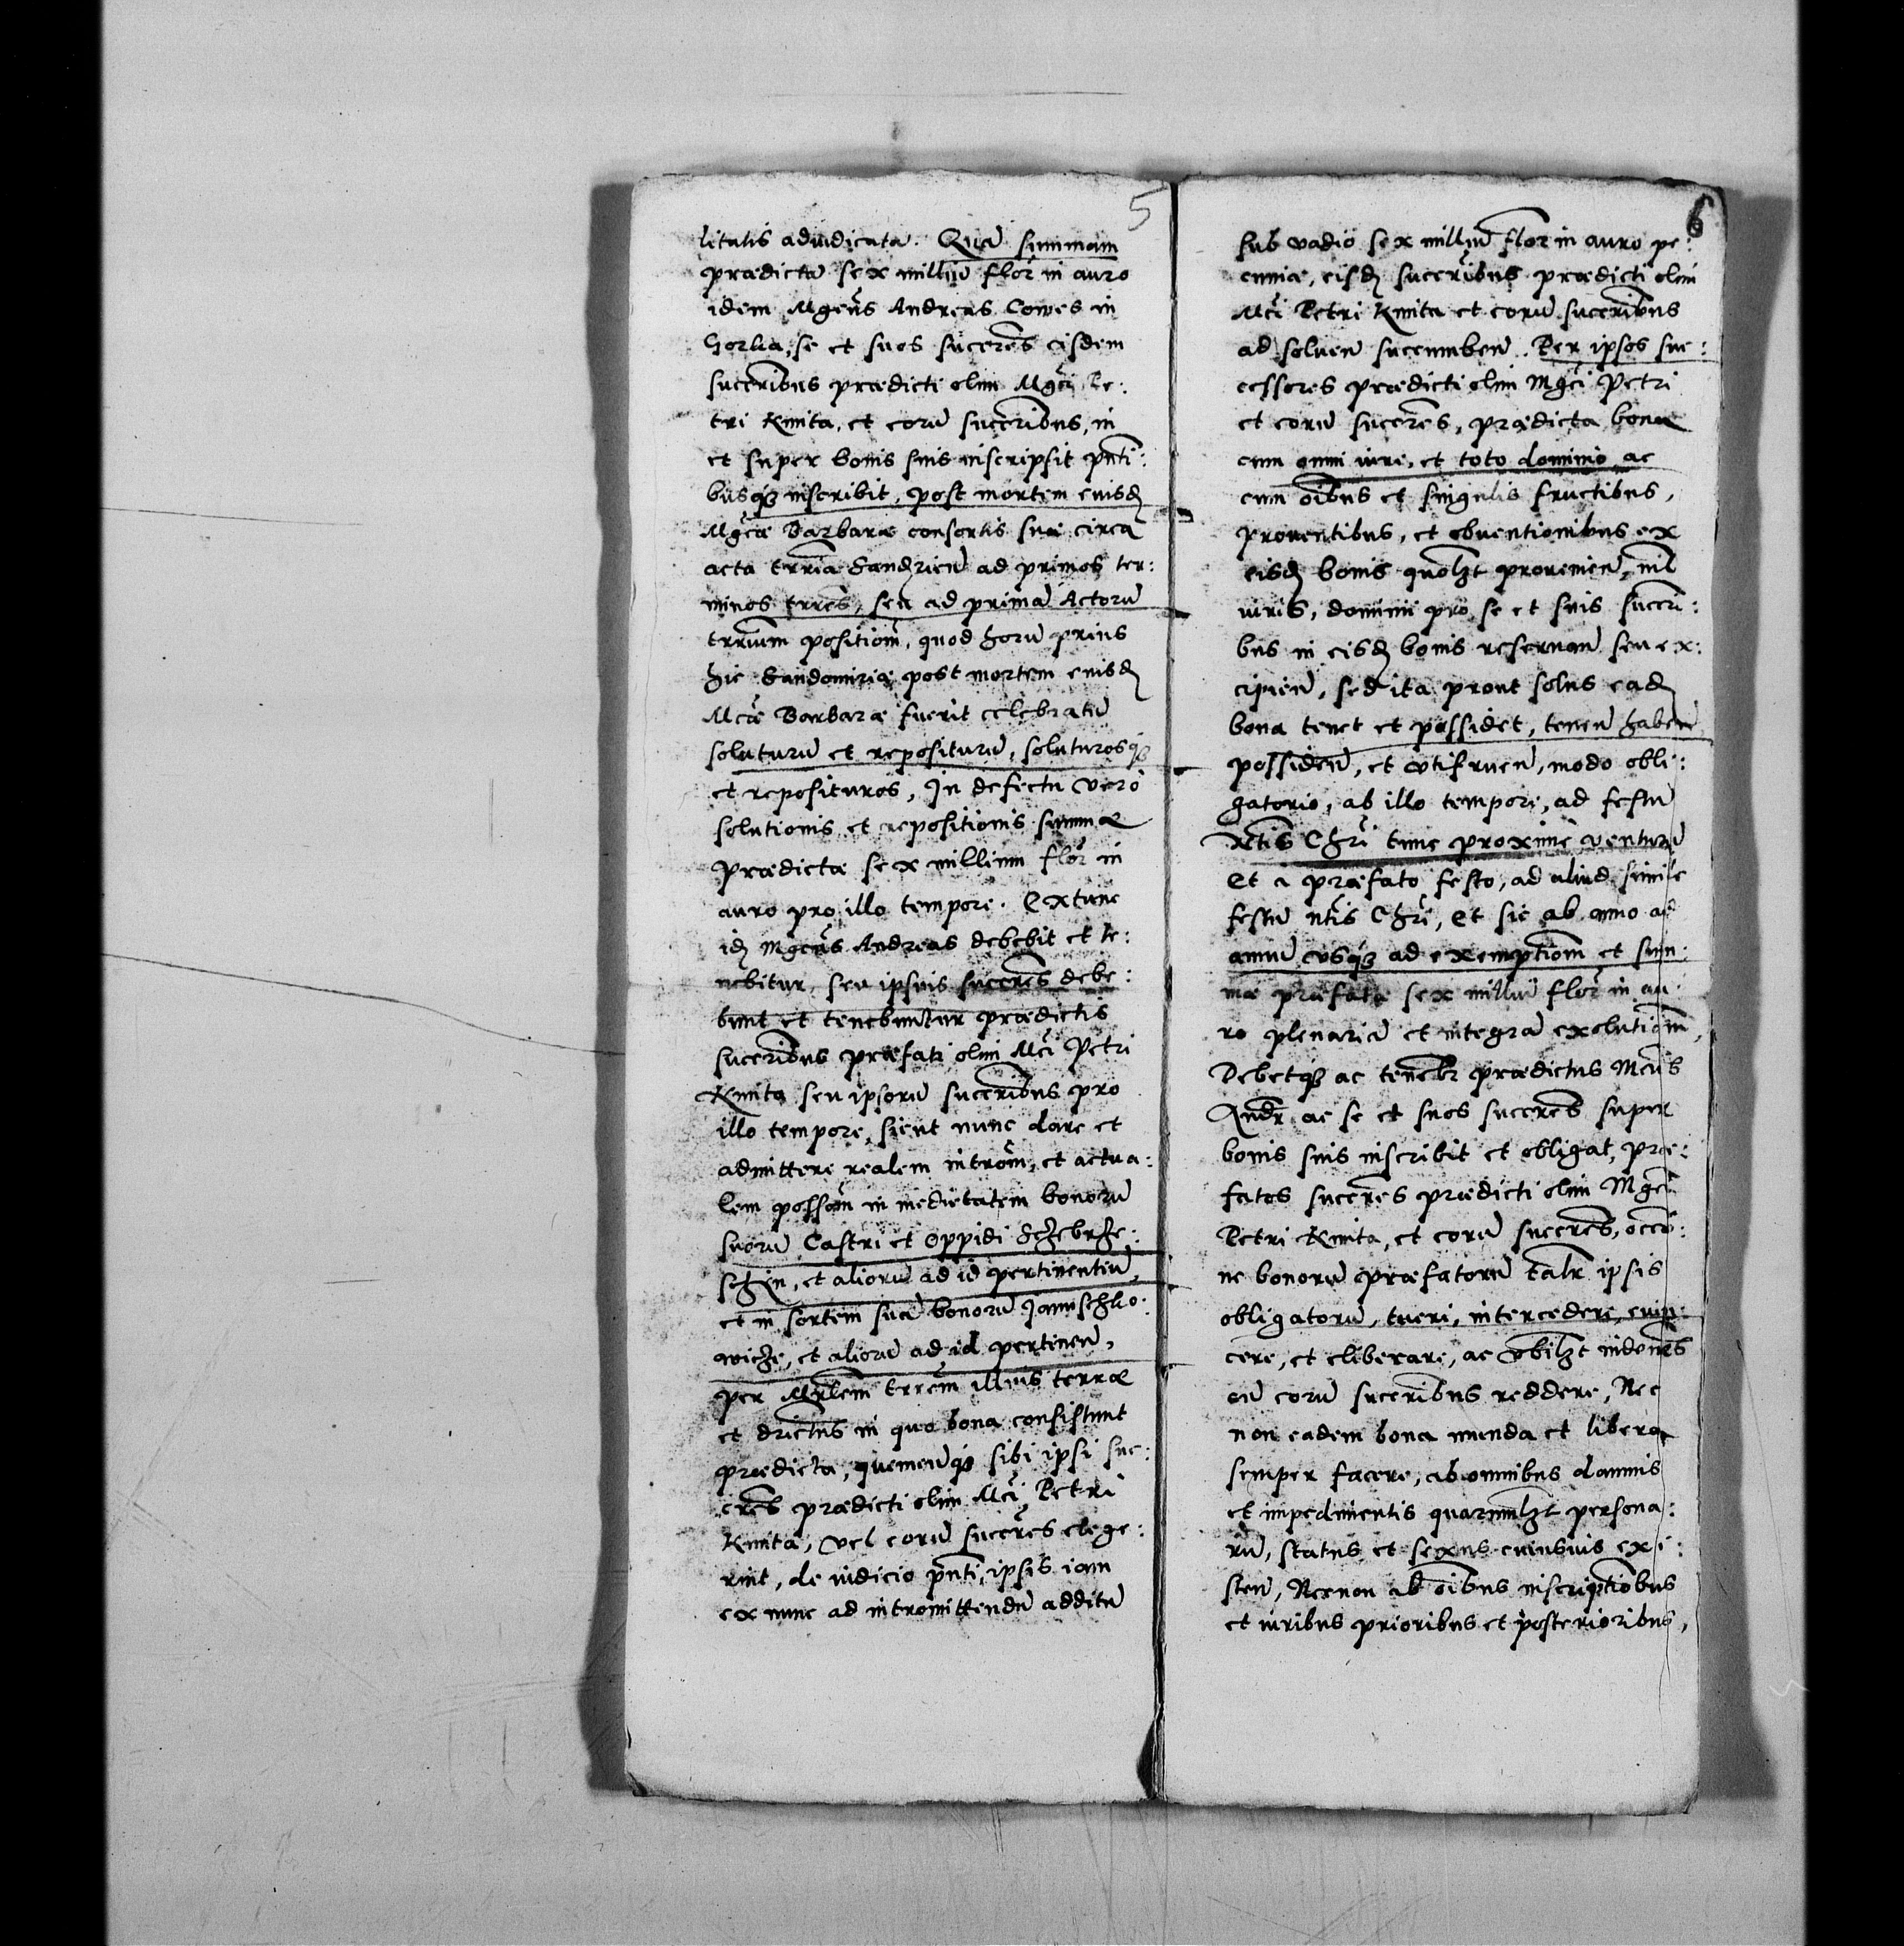 5
litatis adiudicata. Quā summam
prædictā sex milliū flor̄ in auro
idem Mgcūs Andreas Comes in
Gorka, se et suos succr̄es eisdem
succr̄ibus prædicti olim Mgci Pe:
tri Kmita, et eorū succr̄ibus, in
et super bonis suis inscripsit pn̄ti:
busq̃ inscribit, post mortem eiusd̄
Mgcæ Barbaræ consortis suæ circa
acta terrīa Sandzirien̄ ad primos ter:
minos terrēs, seu ad primā Actorū
terrīum positiōm, quod horū prius
hic Sandomiriæ post mortem eiusd̄
Mcæ Barbaræ fuerit celebratū
soluturū et repositurū, soluturosq̃
et reposituros, In defectu vero
solutionis et repositionis summæ
prædictæ sex millium flor̄ in
auro pro illo tempore. Extunc
id̄ Mgcūs Andreas debebit et te:
nebitur, seu ipsius succr̄es debe:
bunt et tenebuntur prædictis
succr̄ibus præfati olim Mci Petri
Kmita seu ipsorū succr̄ibus pro
illo tempore, sicut nunc dare et
admittere realem intrōm, et actua:
lem possōm in medietatem bonorū
suorū Castri et Oppidi Sczebrze:
schin, et aliorū ad id pertinentiū,
et in sortem suā bonorū Januschko:
wicze, et aliorū ad id pertinen̄,
per Mr̄lem terrēm illius terræ
et dr̄ictus in quo bona consistunt
prædicta, quemcunq̃ sibi ipsi suc:
cr̄es prædicti olim Mci Petri
Kmita, vel eorū succr̄es elege:
rint, de iudicio pn̄ti, ipsis iam
ex nunc ad intromittendū additū
6
sub vadio sex milliū flor in auro pe:
cuniæ, eisd̄ succr̄ibus prædicti olim
Mci Petri Kmita et eorū succr̄ibus
ad soluen̄ succumben̄. Per ipsos suc:
cessores prædicti olim Mgci Petri
et eorū succr̄es, prædicta bona
cum omni iure, et toto dominio ac
cum oībus et singulis fructibus,
prouentibus, et obuentionibus ex
eisd̄ bonis quolzt prouenien̄, nil
iuris, dominii pro se et suis succri:
bus in eisd̄ bonis reseruan̄ seu ex:
cipien̄, sed ita prout solus ead̄
bona tenet et possidet, tenen̄ haben̄
possiden̄, et vtifruen̄, modo obli:
gatorio, ab illo tempore, ad festū
Nt̄is Chr̄i tunc proxime venturū
Et a præfato festo, ad aliud simile
festū nt̄is Chr̄i, Et sic ab anno ad
annū vsq̃ ad exemptiōm et sum:
mæ præfatæ sex milliū flor̄ in au:
ro plenariā et integrā exolutiōm,
Debetq̃ ac tenebr̄ prædictus Mcūs
Andr̄ ac se et suos succr̄es super
bonis suis inscribit et obligat, præ:
fatos succr̄es prædicti olim Mgci
Petri Kmita, et eorū succr̄es, occō:
ne bonorū præfatorū talr̄ ipsis
obligatorū, tueri, intercedere, euin:
cere, et eliberare, ac vbilzt indem̄es
cū eorū succr̄ibus reddere, Nec
non eadem bona munda et libera
semper facere, ab omnibus damnis
et impedimentis quarumlzt persona:
rū, status et sexus cuiusuis exi:
sten̄, Necnon ab oībus inscriptiōbus
et iuribus prioribus et posterioribus,